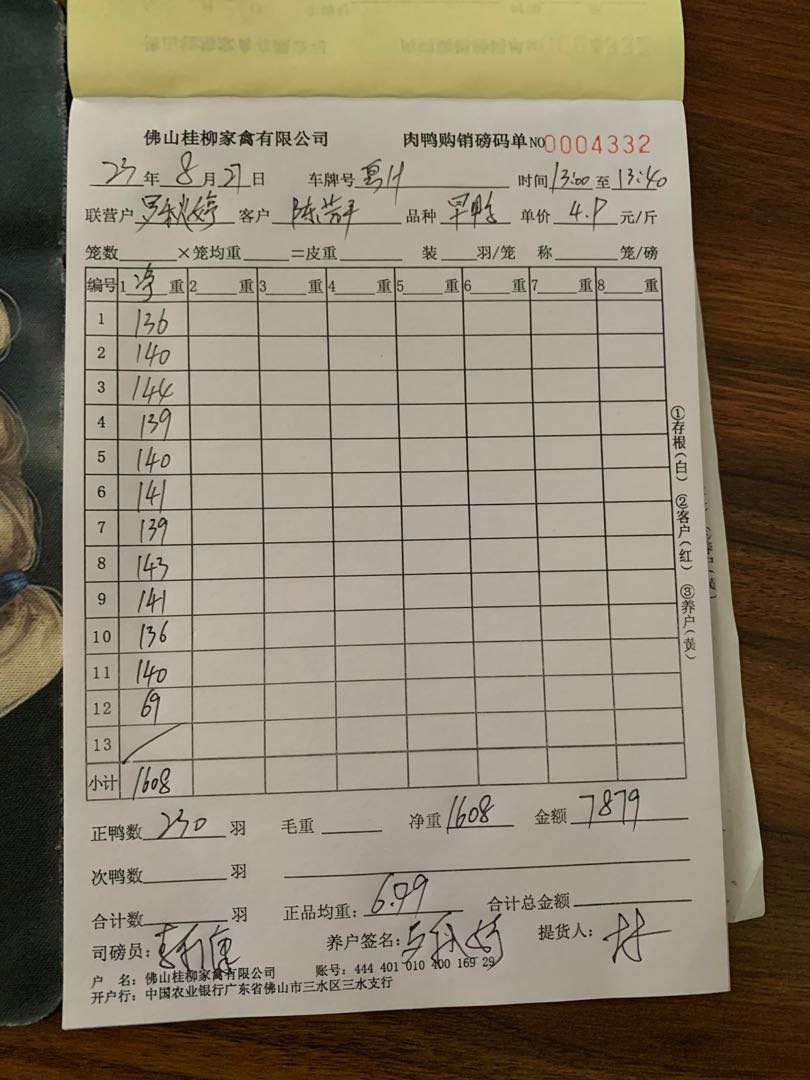 佛山桂柳家禽有限公司 肉鸭购销磅码单 NO 0004332
23年8月27日 车牌号 粤H 时间13:00至13:40
联营户 罗秋婷 客户 陈芳平 品种 早鸭 单价 4.9 元/斤
笼数 ×笼均重 =皮重 装 羽/笼 称 笼/磅
编号 1 净 重 2 重 3 重 4 重 5 重 6 重 7 重 8 重
1 136
2 140
3 144
4 139
5 140
6 141
7 139
8 143
9 141
10 136
11 140
12 69
13
小计 1608
①存根(白) ②客户(红) ③养户(黄)
正鸭数 230 羽 毛重 净重 1608 金额 7879
次鸭数 羽
合计数 羽 正品均重: 6.99 合计总金额
司磅员: 养户签名: 提货人: 林
户 名: 佛山桂柳家禽有限公司 账号: 444 401 010 400 169 29
开户行: 中国农业银行广东省佛山市三水区三水支行